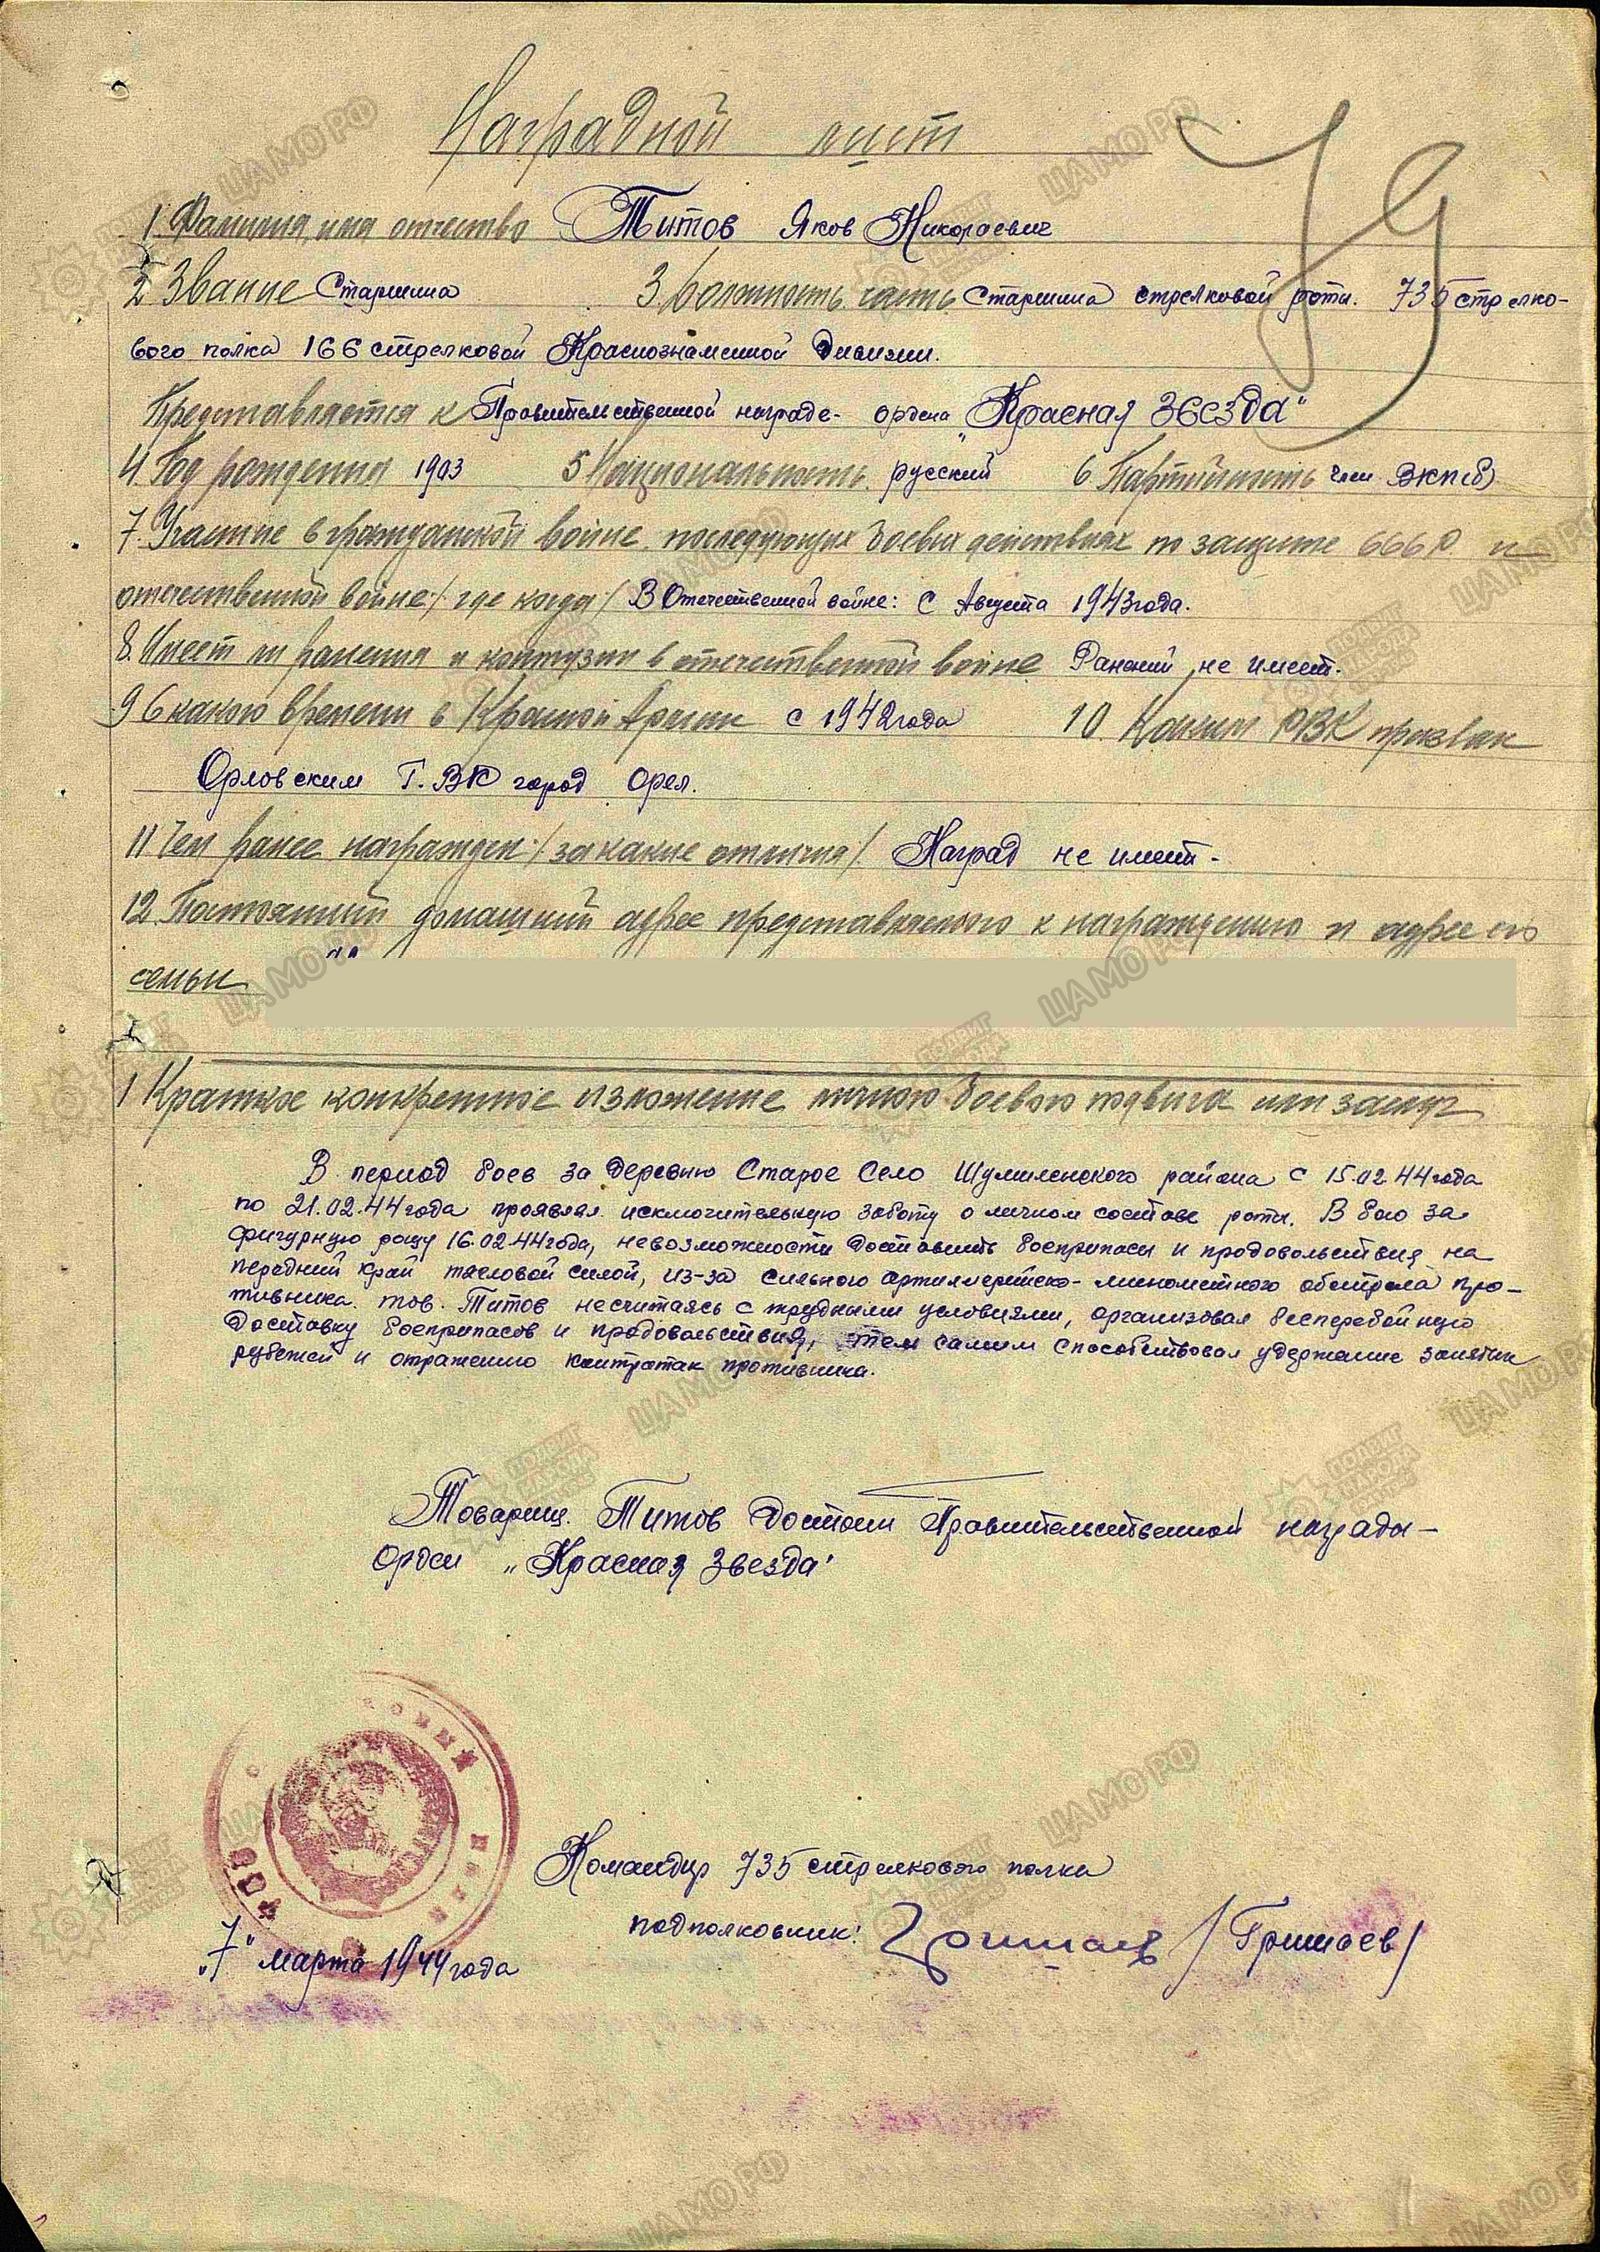 Наградной лист
1. Фамилия, имя отчество Титов Яков Николаевич
2 Звание Старшина 3. Должность, часть. Старшина стрелковой роты. 735 стрелко-
вого полка 166 стрелковой Краснознаменной Дивизии.
Представляется к Правительственной награде- ордена „Красная Звезда"
4. Год рождения 1903 5 Национальность. русский 6 Партийность член ВКП(б)
7. Участие в гражданской войне, последующих боевых действиях по защите СССР и
отечественной войне /где когда/ В Отечественной войне: с Августа 1943 года.
8. Имеет ли ранения и контузии в отечественной войне Ранений не имеет.
9 С какого времени в Красной Армии с 1942 года 10. Каким РВК призван
Орловским Г.ВК город Орел.
11 Чем ранее награжден /за какие отличия/. Наград не имеет-
12. Постоянный домашний адрес представляемого к награждению и адрес его
семьи
1 Краткое конкретное изложение личного боевого подвига или заслуг
В период боев за деревню Старое Село Шумиленского района с 15.02.44 года
по 21.02.44 года проявлял исключительную заботу о личном составе роты. В бою за
фигурную рощу 16.02.44 года, невозможности доставить боеприпасы и продовольствия на
передний край тягловой силой, из-за сильного артиллерийско-минометного обстрела про-
тивника. тов. Титов несчитаясь с трудными условиями, организовал бесперебойную
Доставку боеприпасов и продовольствия, тем самым способствовал удержание занятых
рубежей и отражению контратак противника.
Товарищ. Титов Достоин Правительственной награды-
Орден „Красная Звезда"
Командир 735 стрелкового полка
подполковник: /Гришаев/
„7" марта 1944 года
ЦА МО РФ
ПОДВИГ НАРОДА